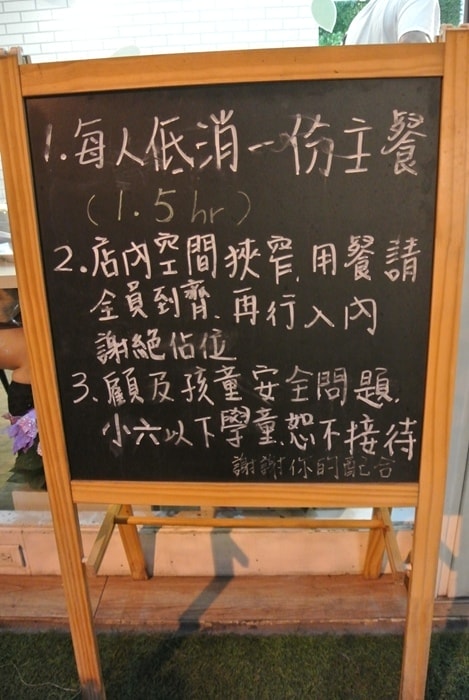 1.每人低消一份主餐
(1.5hr)
2.店內空間狹窄,用餐請
全員到齊.再行入內
謝絕佔位
3.顧及孩童安全問題.
小六以下學童.恕不接待
謝謝你的配合